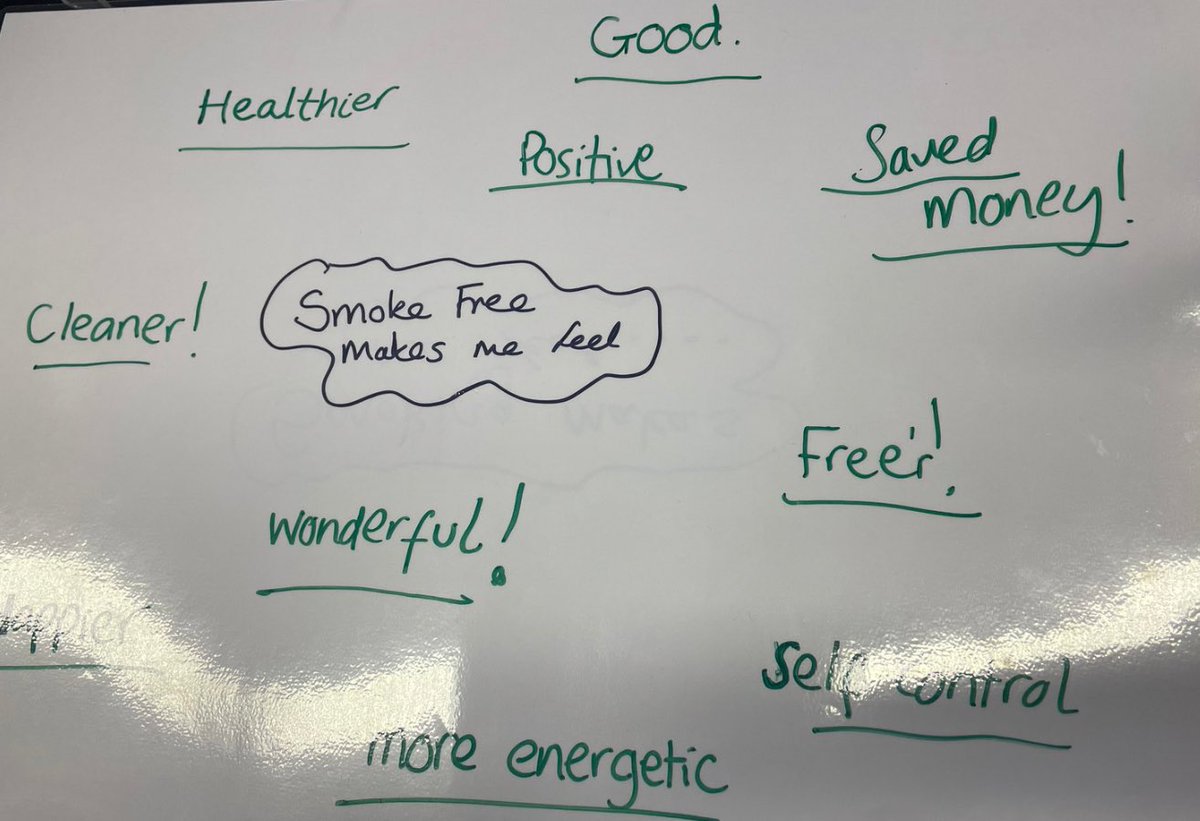 Good.
Healthier
Positive
Saved
money!
Cleaner!
Smoke Free
makes me feel
Free'r!
wonderful!
Happier
Self control
more energetic